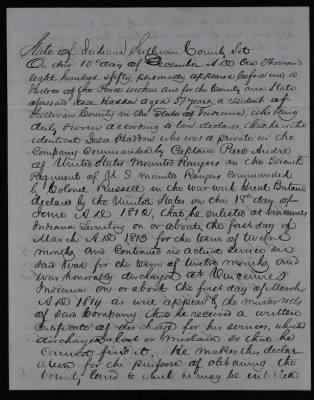 State of Indiana Sullivan County Sct
On this 10th day of December A.D. One Thousand
eight hundred fifty, personally appeared before me a
Justice of the Peace within and for the County and State
aforesaid Jesse Haddon aged 57 years, a resident of
Sullivan County in the State of Indiana, who being
duly sworn according to law, declares that he is the
identical Jesse Haddon who was a private in the
Company Commanded by Captain Piero Andre
of United States Mounted Rangers in the Seventh
Regiment of U S mounted Rangers Commanded
by Colonel Russell in the war with Great Britain
declared by the United States on the 18th day of
June A D 1812, that he enlisted at Vincennes
Indiana Territory on or about the first day of
March A.D 1813 for the term of twelve
months and Continued in actual service in
said War for the term of twelve months and
was honorably discharged at Vincennes
Indiana on or about the first day of March
A.D 1814 as will appear by the muster rolls
of said Company that he received a written
Certificate of discharge for his services, which
discharge is lost or mislaid so that he
cannot find it. He makes this declar
ation for the purpose of obtaining the
bounty land to which he may be entitled